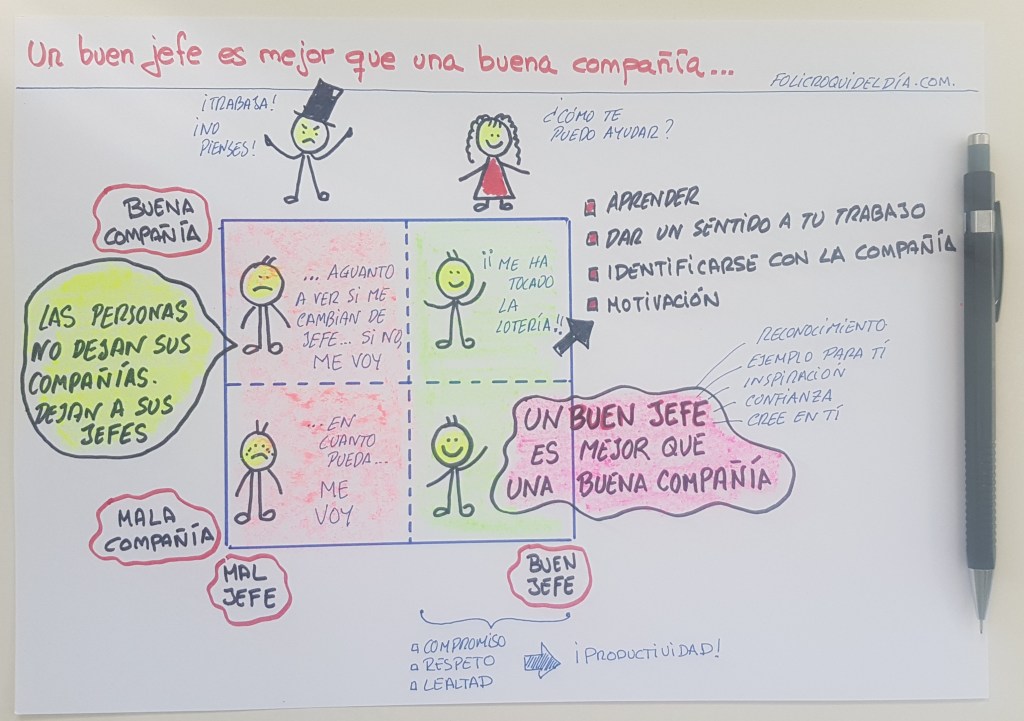 Un buen jefe es mejor que una buena compañía...
FOLICROQUIDELDÍA.COM.
¡TRABAJA!
¡NO
PIENSES!
¿CÓMO TE
PUEDO AYUDAR?
BUENA
COMPAÑÍA
APRENDER
DAR UN SENTIDO A TU TRABAJO
IDENTIFICARSE CON LA COMPAÑÍA
MOTIVACIÓN
LAS PERSONAS
NO DEJAN SUS
COMPAÑÍAS.
DEJAN A SUS
JEFES
... AGUANTO
A VER SI ME
CAMBIAN DE
JEFE... SI NO,
ME VOY
¡¡ ME HA
TOCADO
LA
LOTERÍA!!
RECONOCIMIENTO
EJEMPLO PARA TÍ
INSPIRACIÓN
CONFIANZA
CREE EN TÍ
...EN
CUANTO
PUEDA...
ME
VOY
UN BUEN JEFE
ES MEJOR QUE
UNA BUENA COMPAÑÍA
MALA
COMPAÑÍA
MAL
JEFE
BUEN
JEFE
COMPROMISO
RESPETO
LEALTAD
¡PRODUCTIVIDAD!